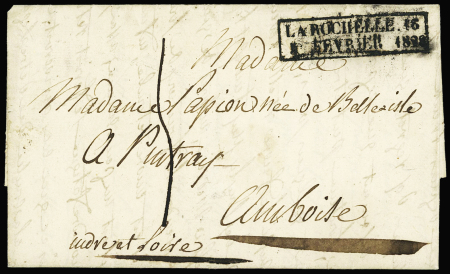 LA ROCHELLE. 16
FEVRIER 1828
Madame
Madame Papion née de Belleisle
A Pintray
Amboise
indre et Loire